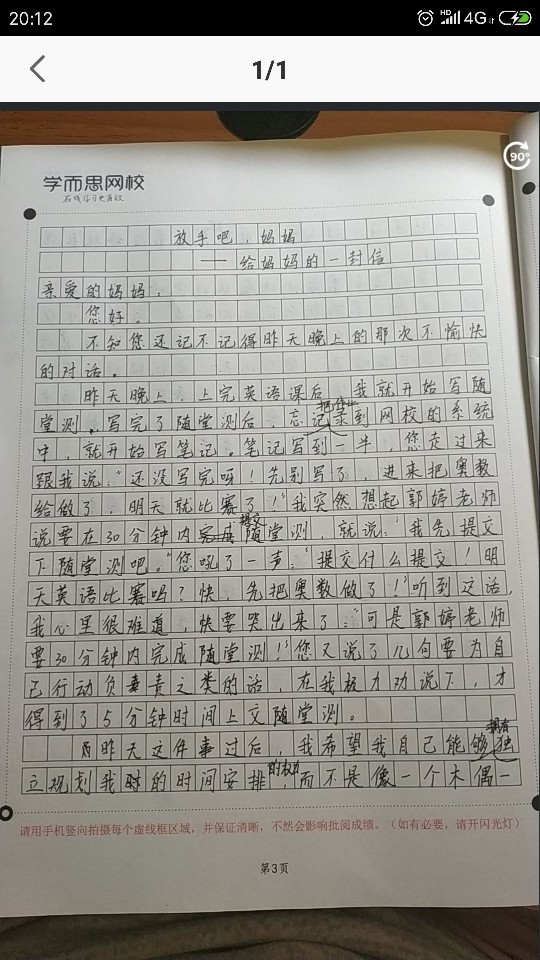 20:12
HD 4G
1/1
90°
学而思网校
在线学习更有效
放手吧,妈妈
——给妈妈的一封信
亲爱的妈妈:
您好。
不知您还记不记得昨天晚上的那次不愉快
的对话。
昨天晚上,上完英语课后,我就开始写随
堂测。写完了随堂测后,忘记把作业录到网校的系统
中,就开始写笔记。笔记写到一半,您走过来
跟我说:“还没写完呀!先别写了,进来把奥数
给做了,明天就比赛了!”我突然想起郭婷老师
说要在30分钟内提交随堂测,就说:“我先提交
下随堂测吧。”您吼了一声:“提交什么提交!明
天英语比赛吗?快,先把奥数做了!”听到这话,
我心里很难道,快要哭出来了:“可是郭婷老师
要30分钟内完成随堂测!”您又说了几句要为自
己行动负责之类的话,在我极力劝说下,才
得到了5分钟时间上交随堂测。
昨天这件事过后,我希望我自己能够拥有独
立规划我的时间安排的权力,而不是像一个木偶一
请用手机竖向拍摄每个虚线框区域,并保证清晰,不然会影响批阅成绩。(如有必要,请开闪光灯)
第3页